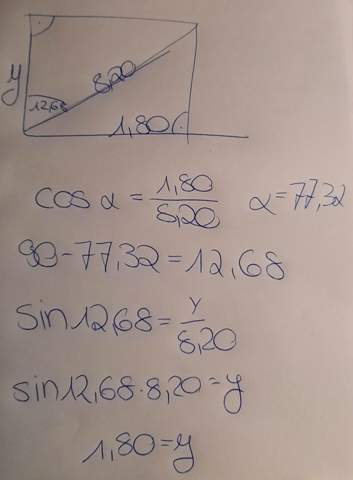 y
8,20
12,68
1,80
cos α = 1,80/8,20 α = 77,32
90 - 77,32 = 12,68
sin 12,68 = y/8,20
sin 12,68 · 8,20 = y
1,80 = y